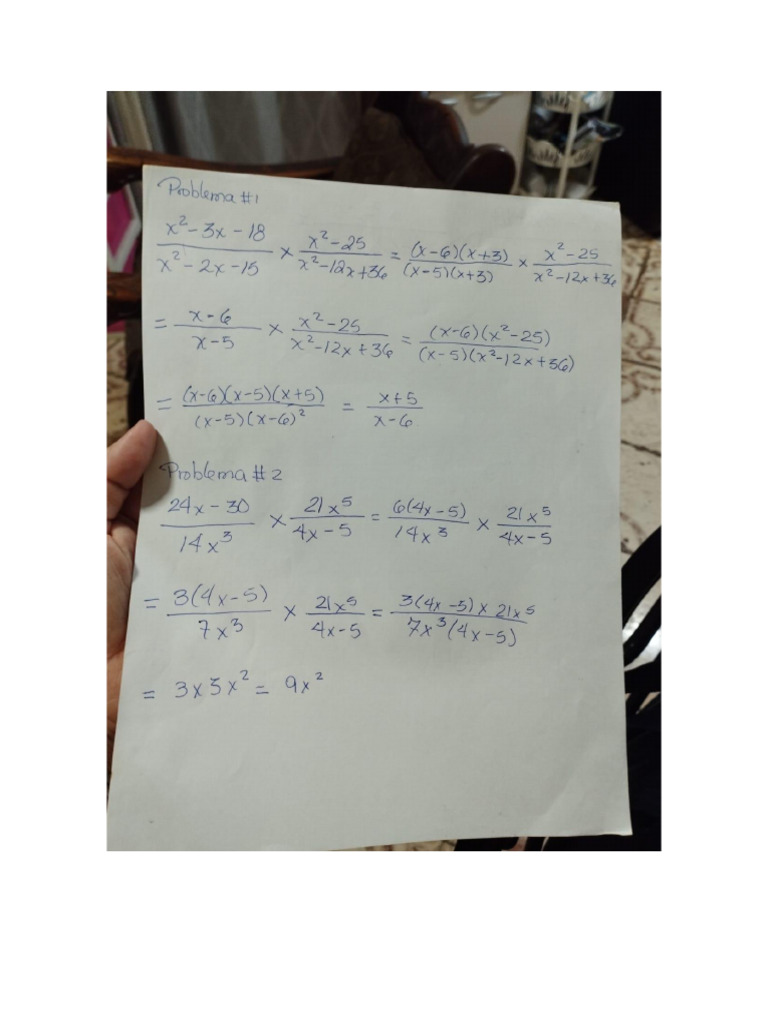 Problema #1
x²-3x-18/x²-2x-15 × x²-25/x²-12x+36 = (x-6)(x+3)/(x-5)(x+3) × x²-25/x²-12x+36
= x-6/x-5 × x²-25/x²-12x+36 = (x-6)(x²-25)/(x-5)(x²-12x+36)
= (x-6)(x-5)(x+5)/(x-5)(x-6)² = x+5/x-6
Problema #2
24x-30/14x³ × 21x⁵/4x-5 = 6(4x-5)/14x³ × 21x⁵/4x-5
= 3(4x-5)/7x³ × 21x⁵/4x-5 = 3(4x-5)×21x⁵/7x³(4x-5)
= 3×3x² = 9x²